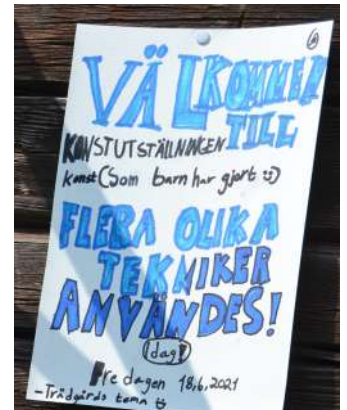 VÄLKOMMEN
TILL
KONSTUTSTÄLLNINGEN
konst (Som barn har gjort :)
FLERA OLIKA
TEKNIKER
ANVÄNDES!
Idag!
Fredagen 18,6,2021
-Trädgårds tema